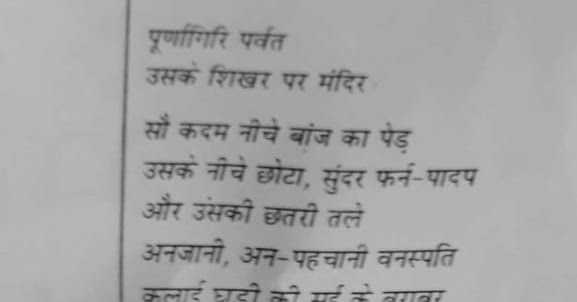 पूर्णागिरि पर्वत
उसके शिखर पर मंदिर
सौ कदम नीचे बांज का पेड़
उसके नीचे छोटा, सुंदर फर्न-पादप
और उसकी छतरी तले
अनजानी, अन-पहचानी वनस्पति
कलाई घड़ी की सुई के बराबर